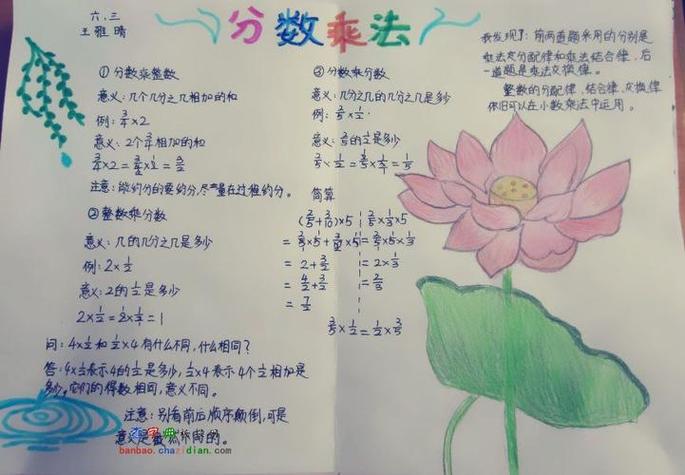 六.三
王雅晴
分数乘法
我发现了：前两道题采用的分别是
乘法分配律和乘法结合律，后
一道题是乘法交换律。
整数的分配律，结合律，交换律
依旧可以在小数乘法中运用。
① 分数乘整数
意义：几个几分之几相加的和
例：3/4×2
意义：2个3/4相加的和
注意：能约分的要约分，尽量在过程约分。
②整数乘分数
意义：几的几分之几是多少
例：2×1/2
意义：2的1/2是多少
2×1/2=2×1/2=1
问：4×1/2和1/2×4有什么不同，什么相同？
答：4×1/2表示4的1/2是多少，1/2×4表示4个1/2相加是
多少，它们的得数相同，意义不同。
注意：别看前后顺序颠倒，可是
意义是
的。
③ 分数乘分数
意义：几分之几的几分之几是多少
例：2/5×1/2
意义：2/5的1/2是多少
简算
(2/5+3/10)×5
= 2+3/2
= 4/2+3/2
= 7/2
2/5×1/3×5
=2/5×5×1/3
=2×1/3
=2/3
3/5×1/2=1/2×3/5
banbao.chazidian.com